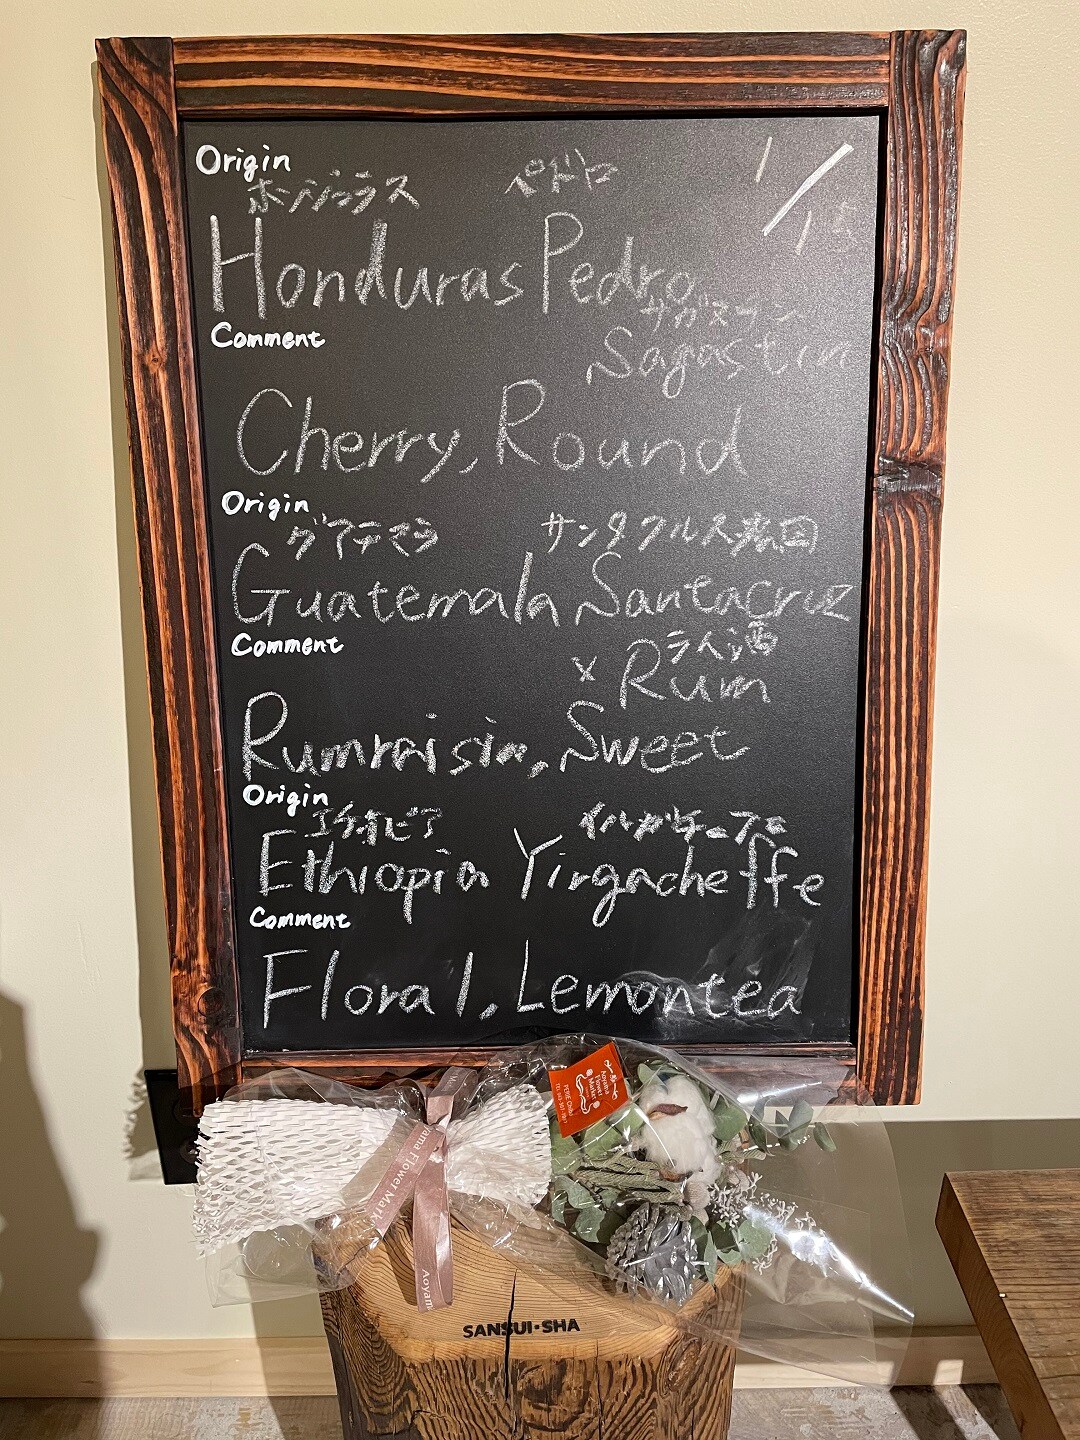 Origin
ホンジュラス ペドロ 1/15
Honduras Pedro
サガスツーン
Comment
Sagastin
Cherry, Round
Origin
グアテマラ サンタクルス農園
Guatemala Santacruz
Comment
ラム酒
× Rum
Rumraisin, Sweet
Origin
エチオピア イルガチェフェ
Ethiopia Yirgacheffe
Comment
Floral, Lemontea
Aoyama
Flower
Market
PERIE Chiba
yama Flower Mark
Aoyam
SANSUI·SHA